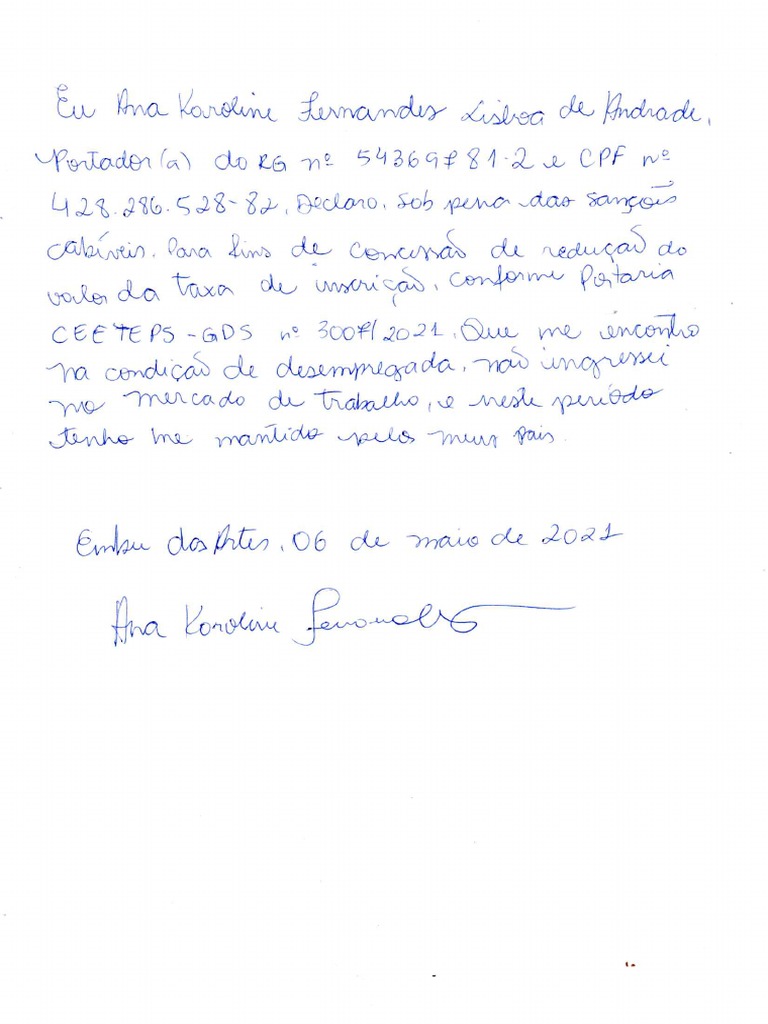 Eu Ana Karoline Fernandes Lisboa de Andrade,
Portador(a) do RG nº 54369781-2 e CPF nº
428.286.528-82, Declaro, sob pena das sanções
cabíveis, para fins de concessão de redução do
valor da taxa de inscrição, conforme Portaria
CEETEPS-GDS nº 3007/2021, Que me encontro
na condição de desempregada, não ingressei
no mercado de trabalho, e neste período
tenho me mantido pelos meus pais.
Embu das Artes, 06 de maio de 2021
Ana Karoline Fernandes